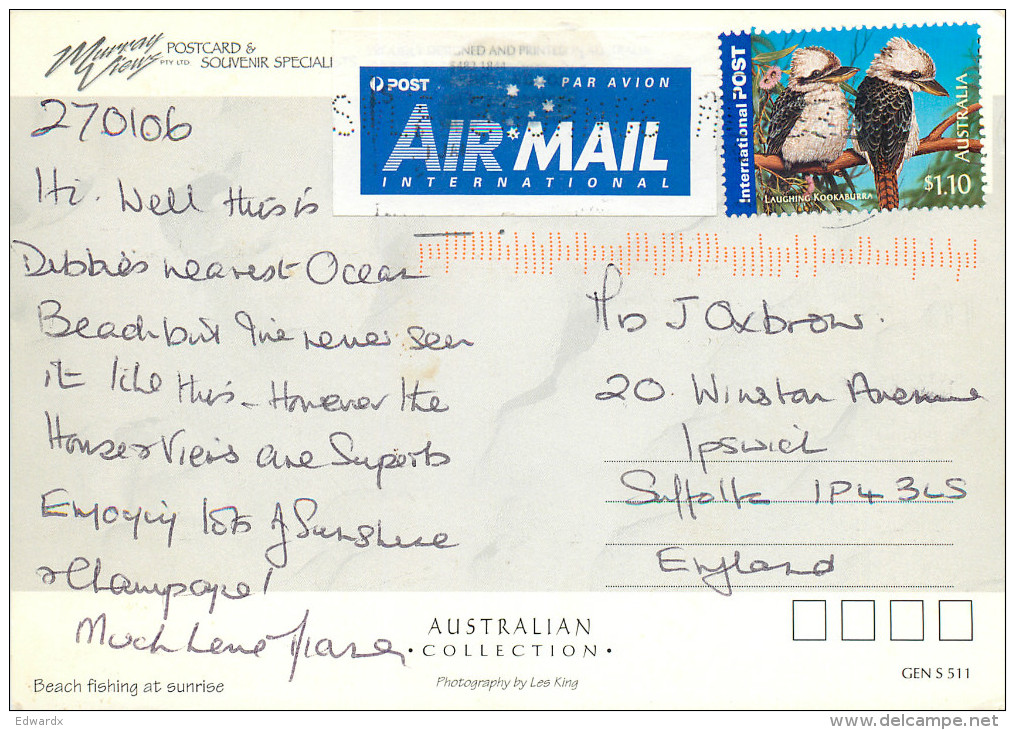 Murray Views PTY LTD POSTCARD & SOUVENIR SPECIALI
POST PAR AVION
AIR MAIL
INTERNATIONAL
International POST
AUSTRALIA
$1.10
LAUGHING KOOKABURRA
270106
Hi. Well this is
Debbie's nearest Ocean
Beach but I've never seen
it like this - However the
House & Views are Superb
Enjoying lots of Sunshine
& Champagne!
Much Love
J Oxbrow.
20. Winston Avenue
Ipswich
Suffolk IP4 3LS
England
AUSTRALIAN
• COLLECTION •
Photography by Les King
Beach fishing at sunrise
GEN S 511
Edwardx
www.delcampe.net